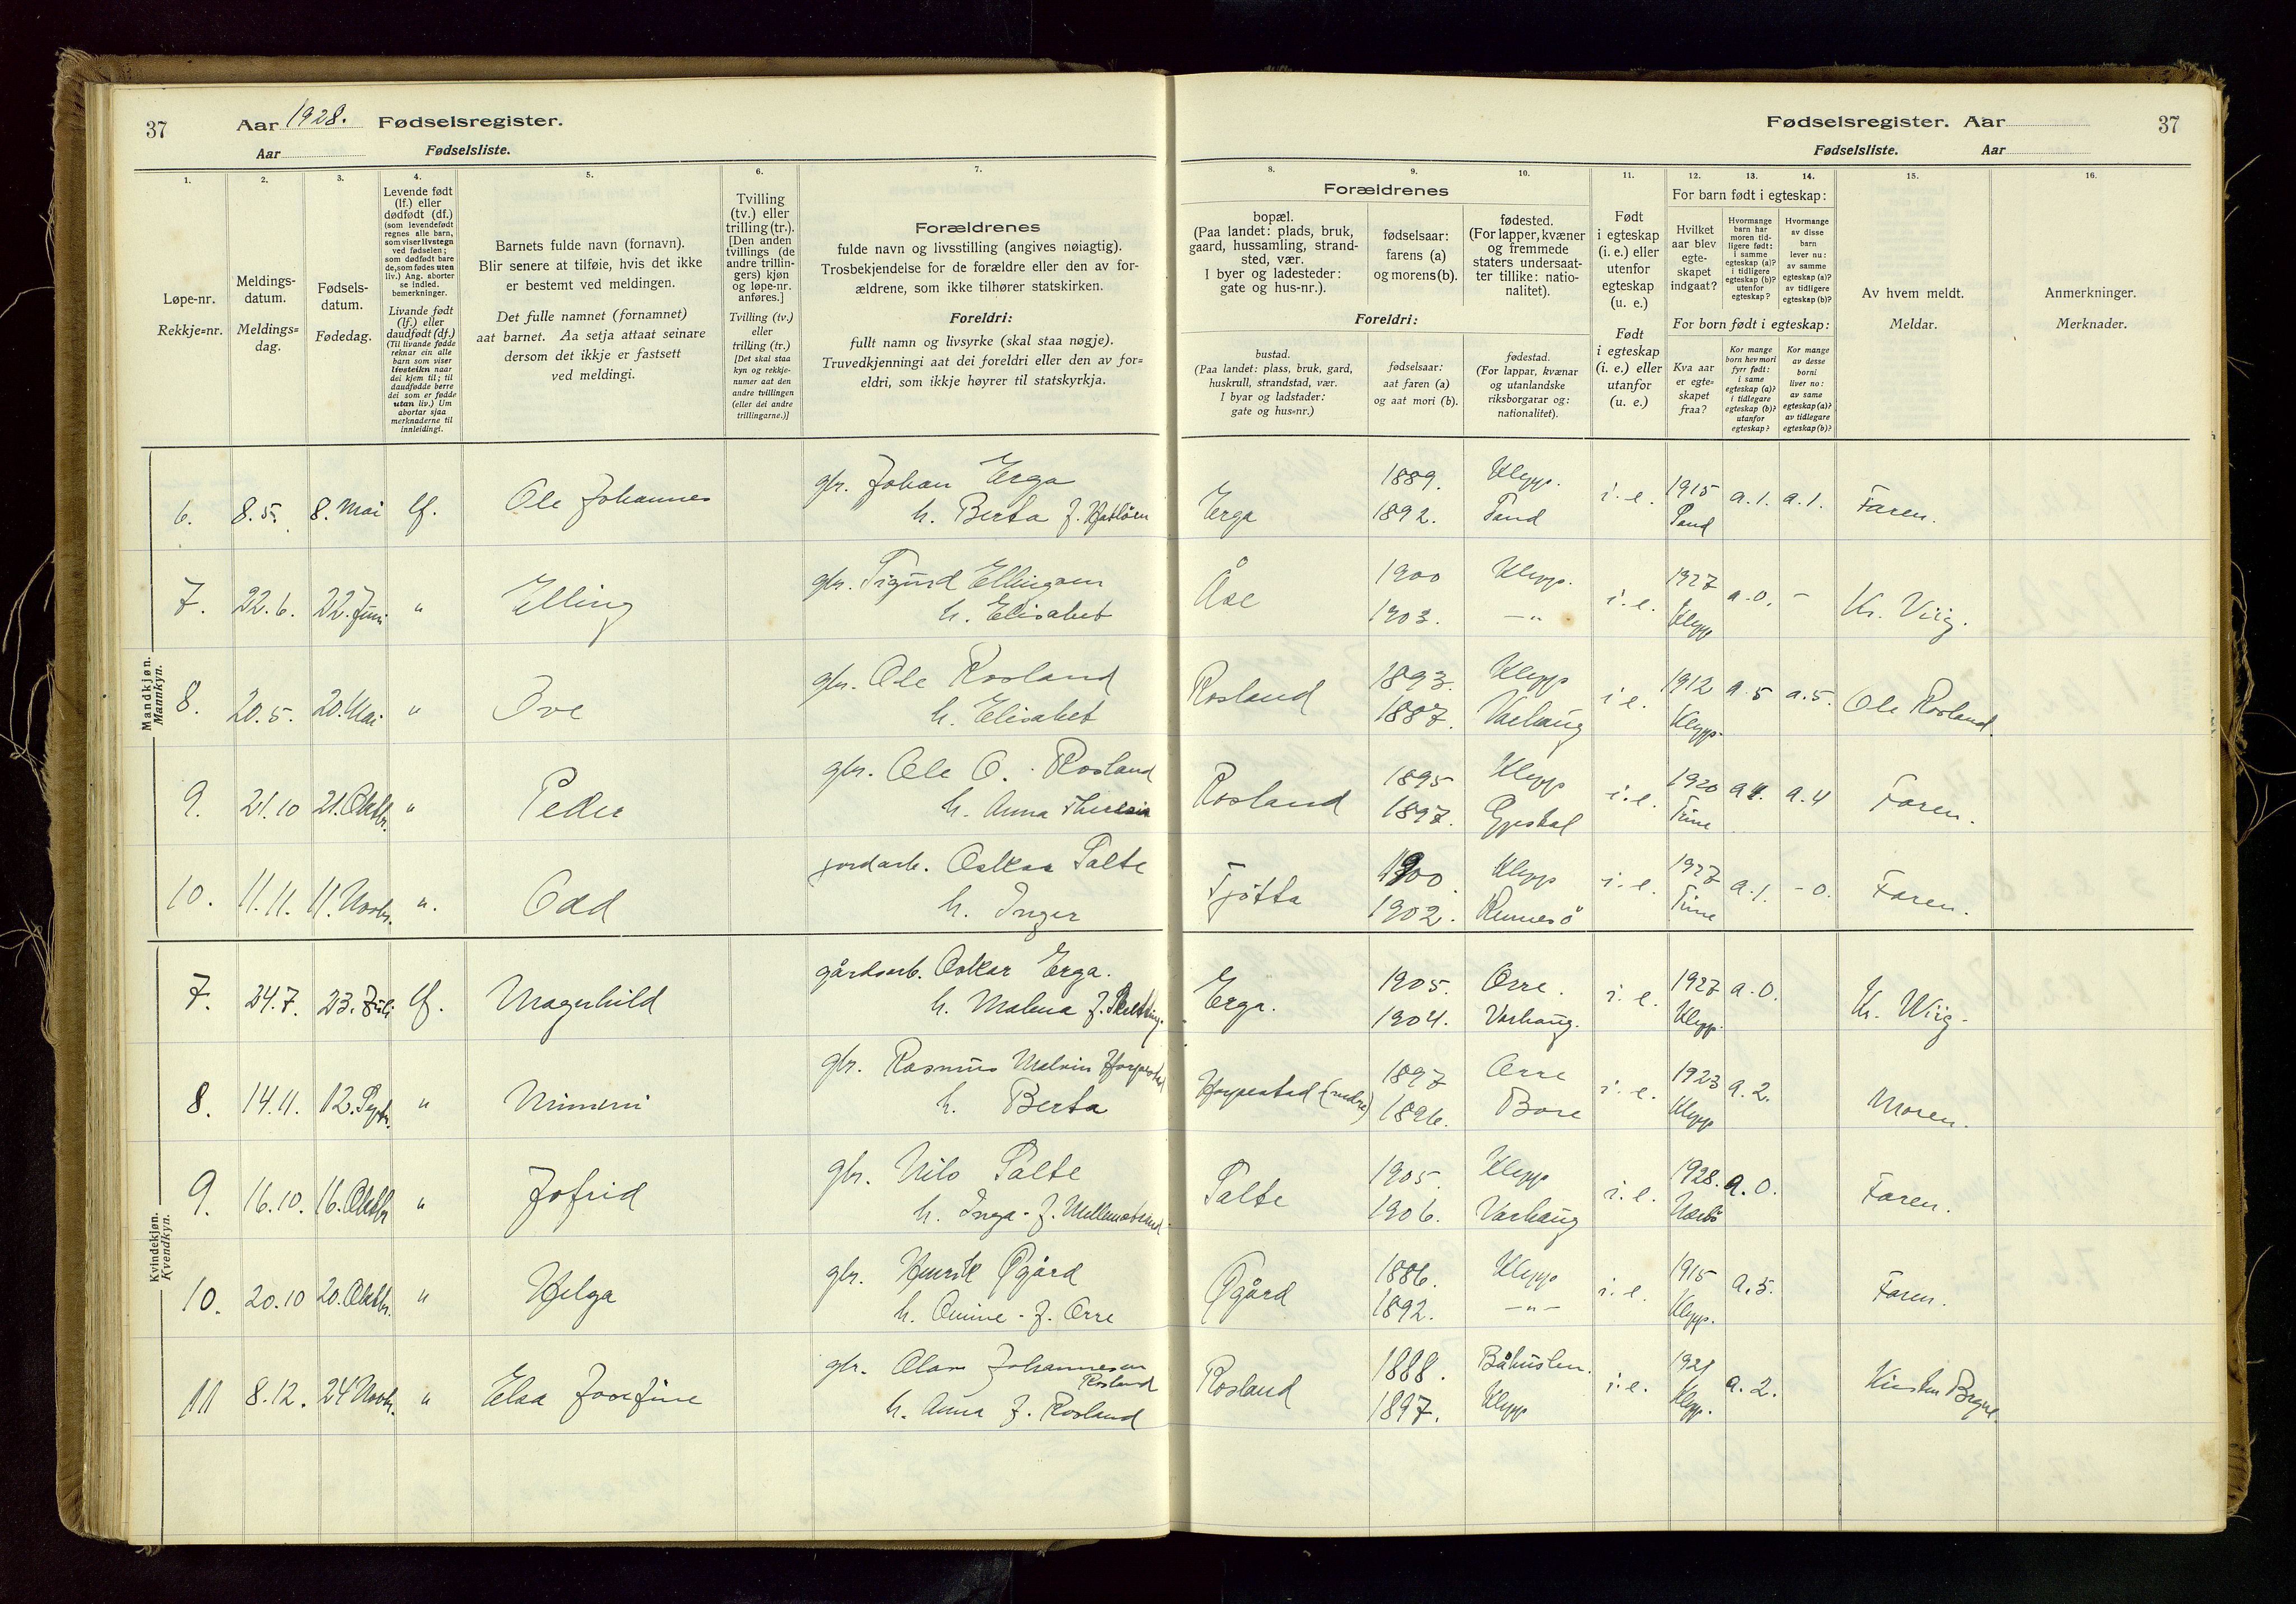 37
Aar 1928. Fødselsregister.
Aar Fødselsliste.
Fødselsregister. Aar
37
Fødselsliste. Aar
1.
Løpe-nr.
Rekkje=nr.
2.
Meldings-
datum.
Meldings=
dag.
3.
Fødsels-
datum.
Fødedag.
4.
Levende født
(lf.) eller
dødfødt (df.)
(som levendefødt
regnes alle barn,
som viser livstegn
ved fødselen;
som dødfødt bare
de, som fødes uten
liv.) Ang. aborter
se indled.
bemerkninger.
Livande født
(lf.) eller
daudfødt (df.)
(Til livande fødde
reknar ein alle
barn som viser
livsteikn naar
dei kjem til; til
daudfødde berre
dei som er fødde
utan liv.) Um
abortar sjaa
merknaderne til
innleidingi.
5.
Barnets fulde navn (fornavn).
Blir senere at tilføie, hvis det ikke
er bestemt ved meldingen.
Det fulle namnet (fornamnet)
aat barnet. Aa setja attaat seinare
dersom det ikkje er fastsett
ved meldingi.
6.
Tvilling
(tv.) eller
trilling (tr.).
[Den anden
tvillings (de
andre trillin-
gers) kjøn
og løpe-nr.
anføres.]
Tvilling (tv.)
eller
trilling (tr.)
[Det skal staa
kyn og rekkje-
numer aat den
andre tvillingen
(eller dei andre
trillingarne.)]
7.
Forældrenes
fulde navn og livsstilling (angives nøiagtig).
Trosbekjendelse for de forældre eller den av for-
ældrene, som ikke tilhører statskirken.
Foreldri:
fullt namn og livsyrke (skal staa nøgje).
Truvedkjenningi aat dei foreldri eller den av for=
eldri, som ikkje høyrer til statskyrkja.
8.
Forældrenes
bopæl.
(Paa landet: plads, bruk,
gaard, hussamling, strand-
sted, vær.
I byer og ladesteder:
gate og hus-nr.).
Foreldri:
bustad.
(Paa landet: plass, bruk, gard,
huskrull, strandstad, vær.
I byar og ladstader:
gate og hus=nr.)
9.
fødselsaar:
farens (a)
og morens (b).
fødselsaar:
aat faren (a)
og aat mori (b).
10.
fødested.
(For lapper, kvæner
og fremmede
staters undersaat-
ter tillike: natio-
nalitet).
fødestad.
(For lappar, kvænar
og utanlandske
riksborgarar og:
nationalitet).
11.
Født
i egteskap
(i. e.) eller
utenfor
egteskap
(u. e.)
Født
i egteskap
(i. e.) eller
utanfor
(u. e.)
12. 13. 14.
For barn født i egteskap:
Hvilket
aar blev
egte-
skapet
indgaat?
Hvormange
barn har
moren tid-
ligere født:
i samme
egteskap (a)?
i tidligere
egteskap (b)?
utenfor
egteskap?
Hvormange
av disse
barn
lever nu:
av samme
egteskap (a)?
av tidligere
egteskap (b)?
For born født i egteskap:
Kva aar
er egte=
skapet
fraa?
Kor mange
born hev mori
fyrr født:
i same
egteskap (a)?
i tidlegare
egteskap (b)?
utanfor
egteskap?
Kor mange
av desse
borni
liver no:
av same
egteskap (a)?
av tidlegare
egteskap (b)?
15.
Av hvem meldt.
Meldar.
16.
Anmerkninger.
Merknader.
Mandkjøn.
Mannkyn.
6. 8.5. 8. Mai lf. Ole Johannes gbr. Johan Erga
h. Berta f. Hatløen
Erga 1889. Klepp. i. e. 1915 a.1. a.1. Faren.
1892.
7. 22.6. 22. Juni " Elling gbr. Sigurd Ellingsen
h. Elisabet
Åse 1900 Klepp. i. e. 1927 a.0. - Kr. Viig.
1903. -"- Klepp
8. 20.5. 20. Mai " Ove gbr. Ole Rosland
h. Elisabet
Rosland 1893. Klepp i e. 1912 a.5 a.5. Ole Rosland.
1887. Varhaug Klepp.
9. 21.10 21. Oktbr. " Peder gbr. Ole O. Rosland
h. Anna Theresia
Rosland 1895 Klepp i. e. 1920 a4. a.4 Faren.
1897. Egeskal Time
10. 11.11. 11. Novbr. ". Odd jordarb. Oskar Salte
h. Inger
Tjøtta 1900. Klepp i. e. 1927 a.1. -0. Faren.
1902. Rennesø Time
Kvindekjøn.
Kvendkyn.
7. 24.7. 23. Juli lf. Magnhild gårdsarb. Oskar Erga.
h. Malena f. Skretting.
Erga. 1905. Orre. i. e. 1927 a.0. Kr. Wiig.
1904. Varhaug. Klepp.
8. 14.11. 12. Septr. " Mimmi gbr. Rasmus Malvin Horpestad
h. Berta
Horpestad (nedre) 1897 Orre i. e. 1923 a.2. Moren.
1896. Bore Klepp
9. 16.10. 16. Oktbr " Jofrid gbr. Nils Salte
h. Inga f. Mellemstrand.
Salte 1905. Klepp i. e. 1928. a.0. Faren.
1906. Varhaug Nærbø
10. 20.10 20. Oktbr. " Helga gbr. Henrik Øgård
h. Omine f. Orre
Øgård 1886. Klepp i. e. 1915 a.5. Faren.
1892. -"- Klepp.
11 8.12. 24 Novbr. " Elsa Josefine gbr. Olav Johannesen
Rosland
h. Anna f. Rosland
Rosland 1888. Båhuslen. i. e. 1921 a.2. Kirsten Bryne.
1897. Klepp Klepp.